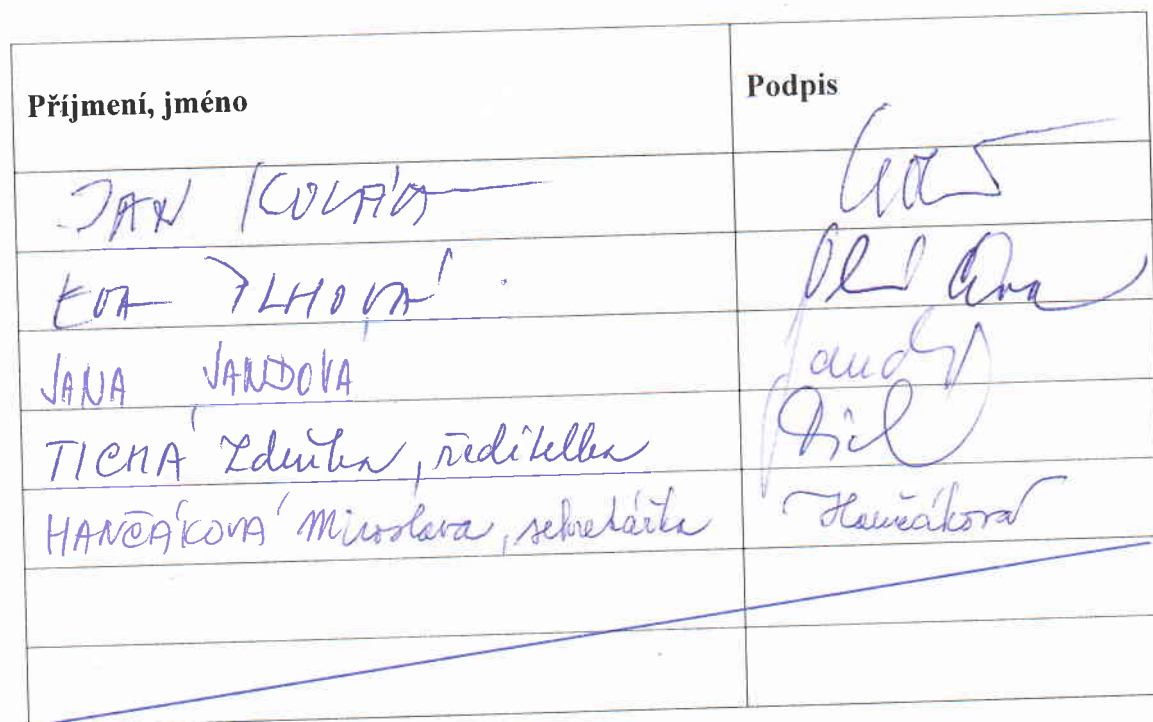 Příjmení, jméno Podpis
JAN KOLÁŘ
EVA PLHOVÁ
JANA JANDOVÁ
TICHÁ Zdeňka, ředitelka
HANČÁKOVÁ Miroslava, sekretářka Hančáková